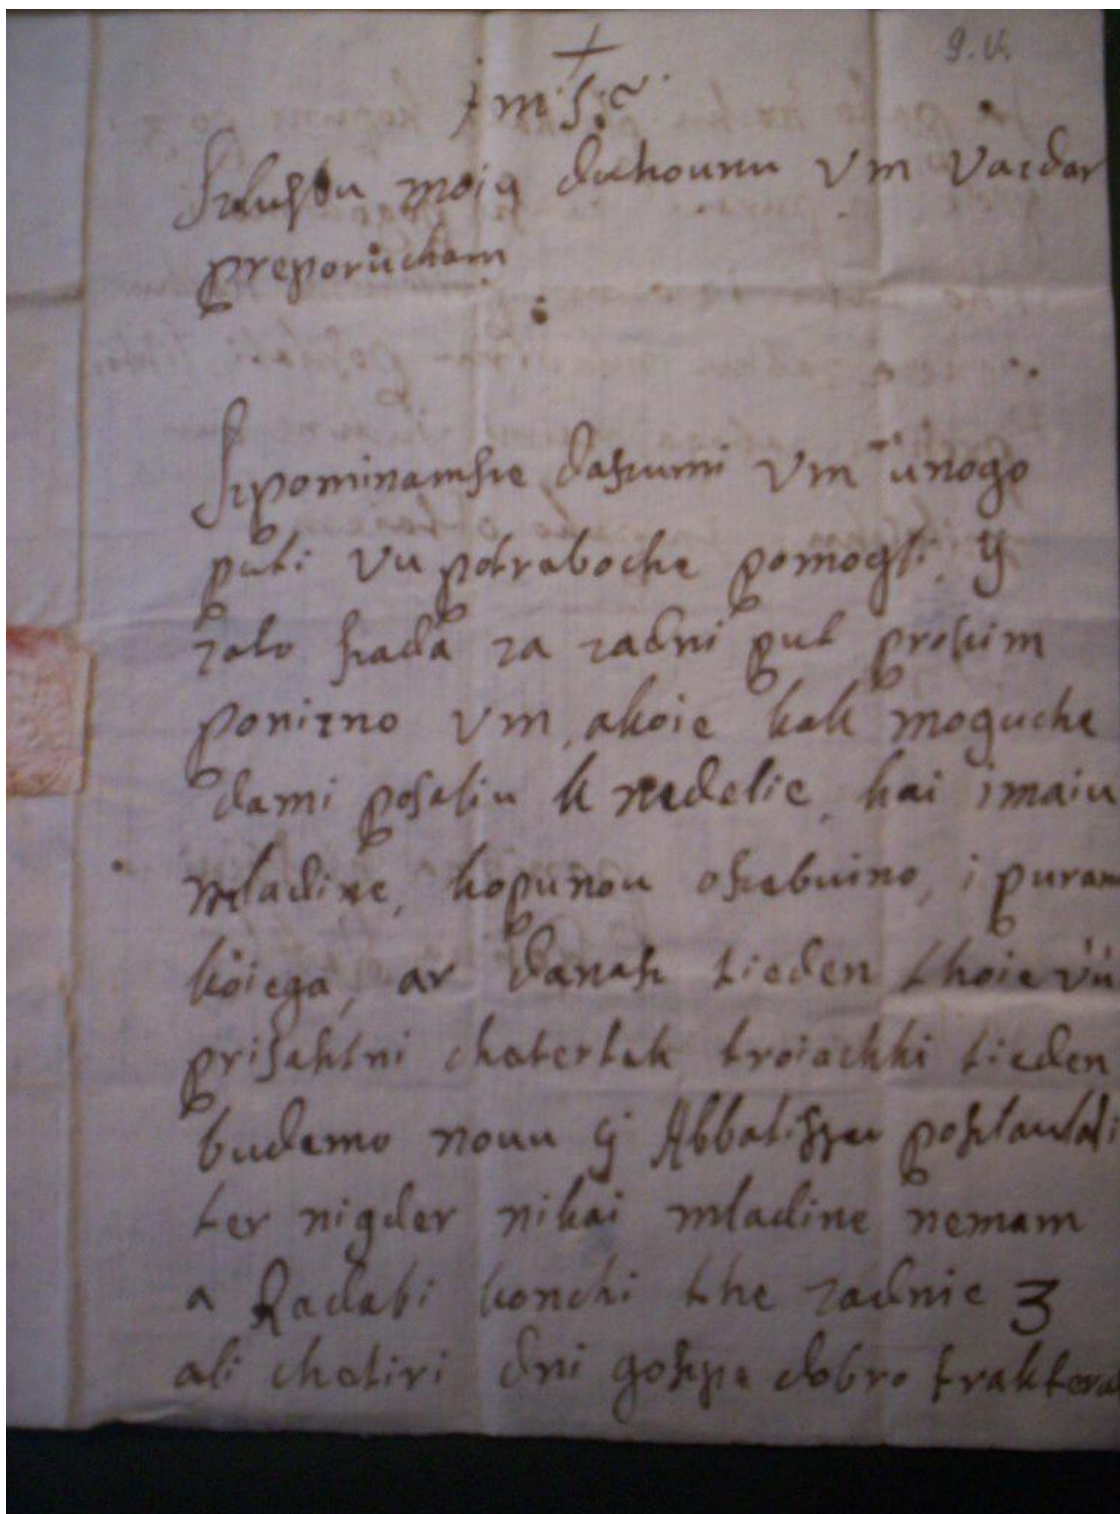 9. V.
J m S: C
Szlusbu moiu duhounu Vm Vazdar
preporucham
Szpominamsze daszumi Vm vnogo
puti Vu potreboche pomogli, ÿ
zato szada za zadni put proszim
ponizno Vm, akoie kak moguche
dami posaliu k nedelie, kai imaiu
mladine, kopunou oszebuino, i puran
koiega, ar danasz tieden
prisesztni chetertek troiachki tieden
budemo nouu ÿ Abbatiszu posztaulali
ter nigder nikai mladine nemam
a Radabi konchi the zadnie 3
ali chetiri dni goszpe dobro traktera